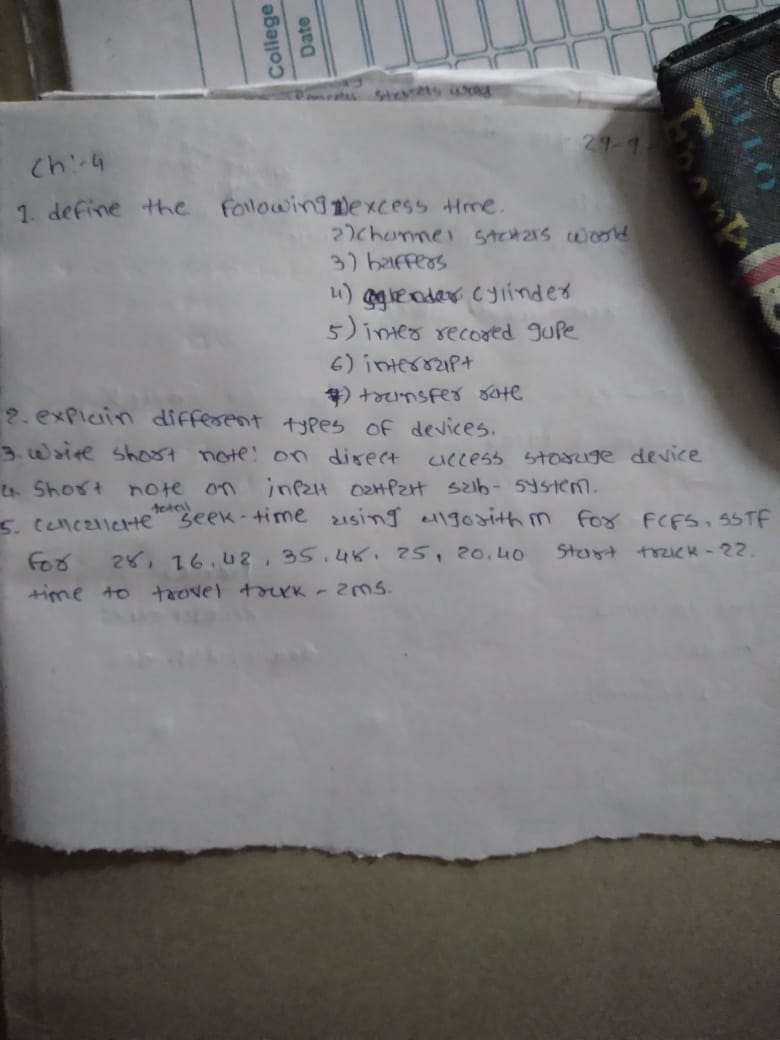 College
Date
29-9-
Ch:-4
1. define the following 1) excess time.
2) channel status woord
3) buffers
4) cylinder
5) inter recored gupe
6) interrupt
7) transfer rate
2. explain different types of devices.
3. write short note: on direct access storage device
4. Short note on input output sub-system.
5. cancellate total seek-time using algorithm for FCFS, SSTF
for 28, 16, 42, 35, 48, 25, 20, 40 start track - 22.
time to travel track - 2ms.